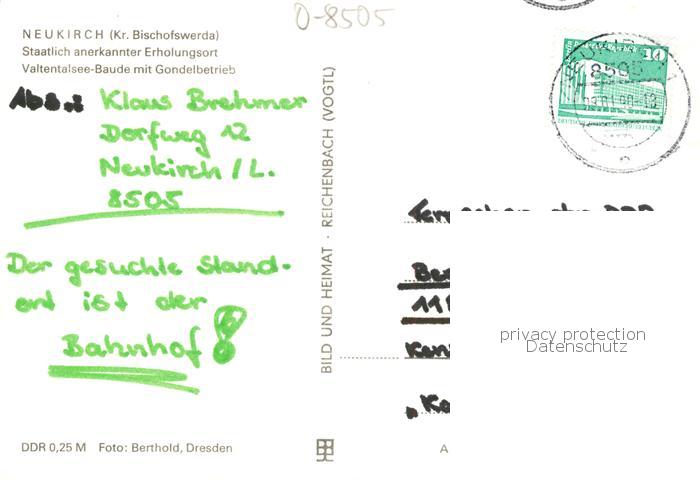 0-8505
NEUKIRCH (Kr. Bischofswerda)
Staatlich anerkannter Erholungsort
Valtentalsee-Baude mit Gondelbetrieb
Abs.: Klaus Brehmer
Dorfweg 12
Neukirch / L.
8505
Der gesuchte Stand-
ort ist der
Bahnhof!
BILD UND HEIMAT · REICHENBACH (VOGTL)
DDR 0,25 M Foto: Berthold, Dresden
10
8505
DDR
11
privacy protection
Datenschutz
A